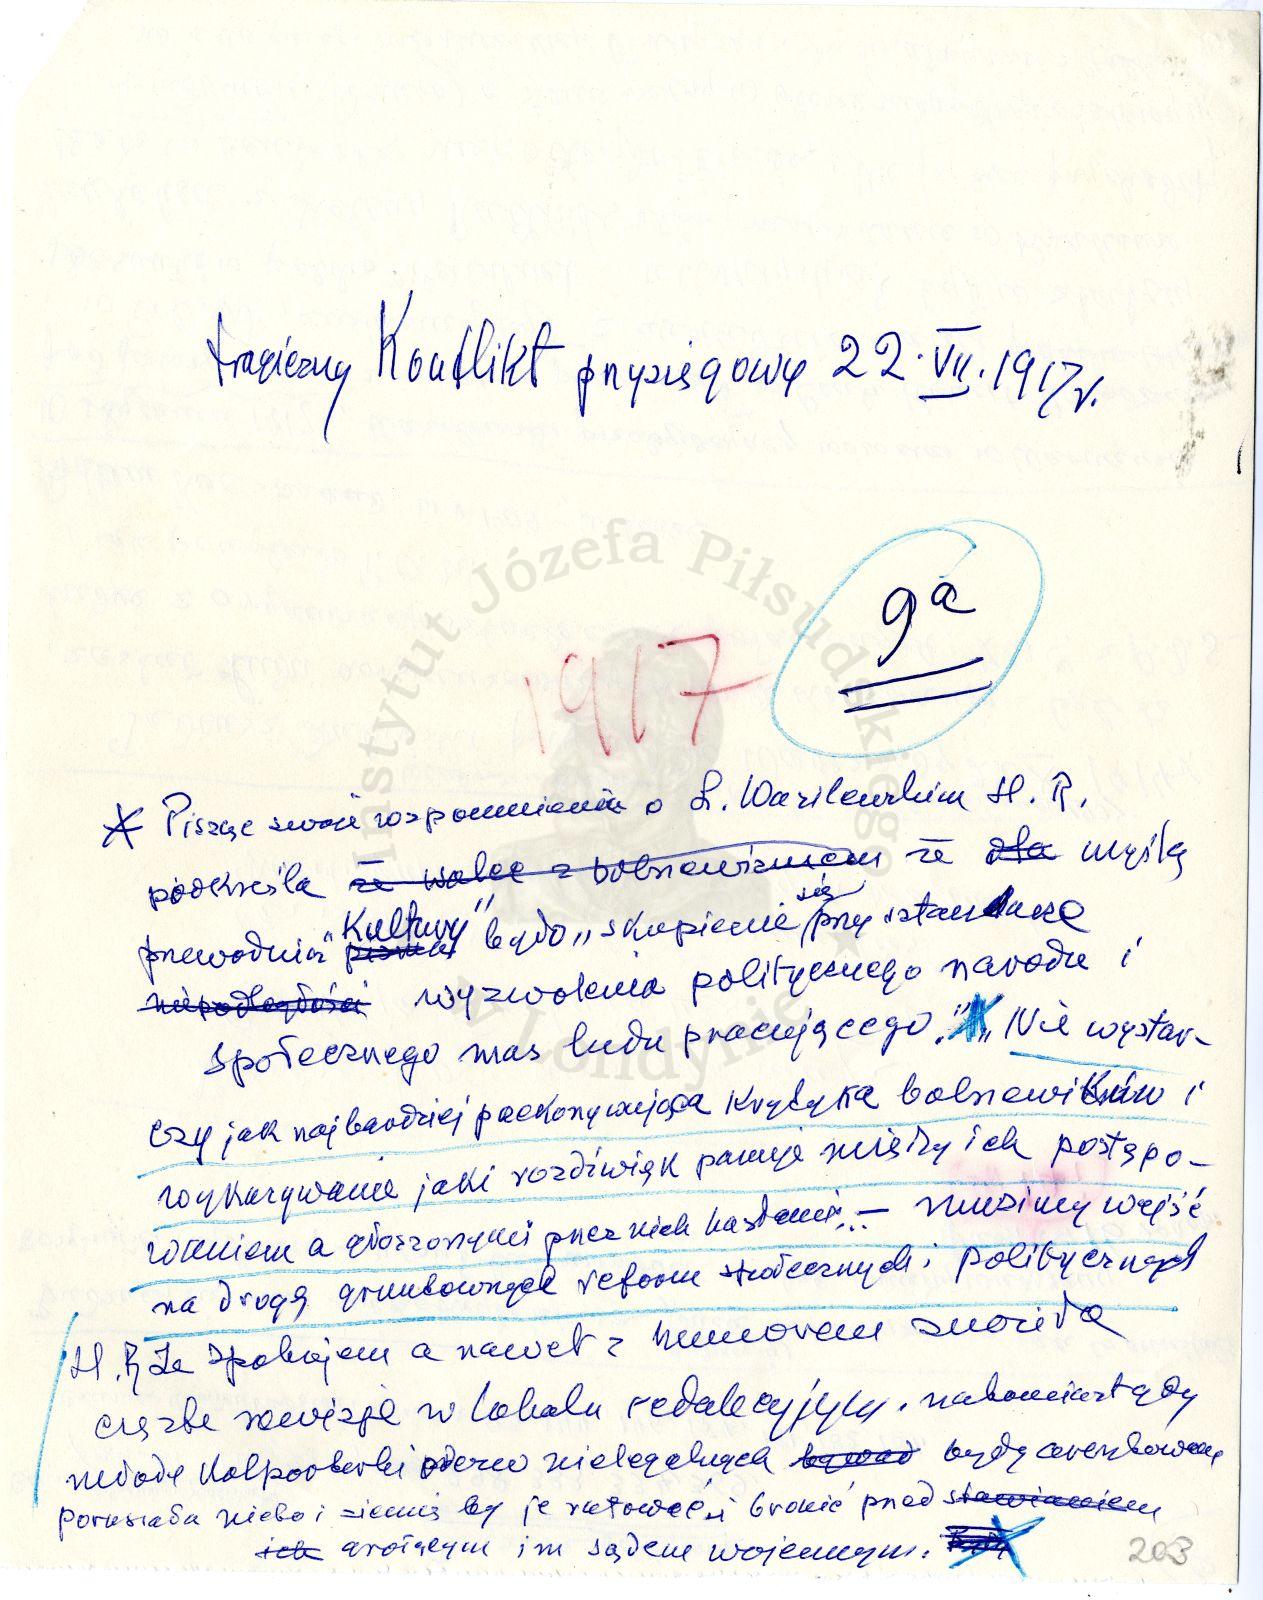 tragiczny Konflikt przysięgowy 22.VII.1917 r.
9a
1917
Instytut Józefa Piłsudskiego w Londynie
* Pisząc swoje wspomnienia o L. Wasilewskim H. R.
podkreśla że walce z bolszewizmem że dla myślą
przewodnią "Kultury" było „skupienie się przy sztandarze
niepodległości wyzwolenia politycznego narodu i
społecznego mas ludu pracującego." „Nie wystar-
czy jak najbardziej przekonywująca krytyka bolszewików i
wykazywanie jaki rozdźwięk panuje między ich postępo-
waniem a głoszonymi przez nich hasłami... — musimy wejść
na drogę gruntownych reform społecznych i politycznych
H. R. ze spokojem a nawet z humorem znosiła
częste rewizje w lokalu redakcyjnym, natomiast gdy
młode kolporterki nielegalnych bywały były aresztowane
poruszała niebo i ziemię by je ratować i bronić przed stawianiem
ich grożącym im sądem wojennym.
203